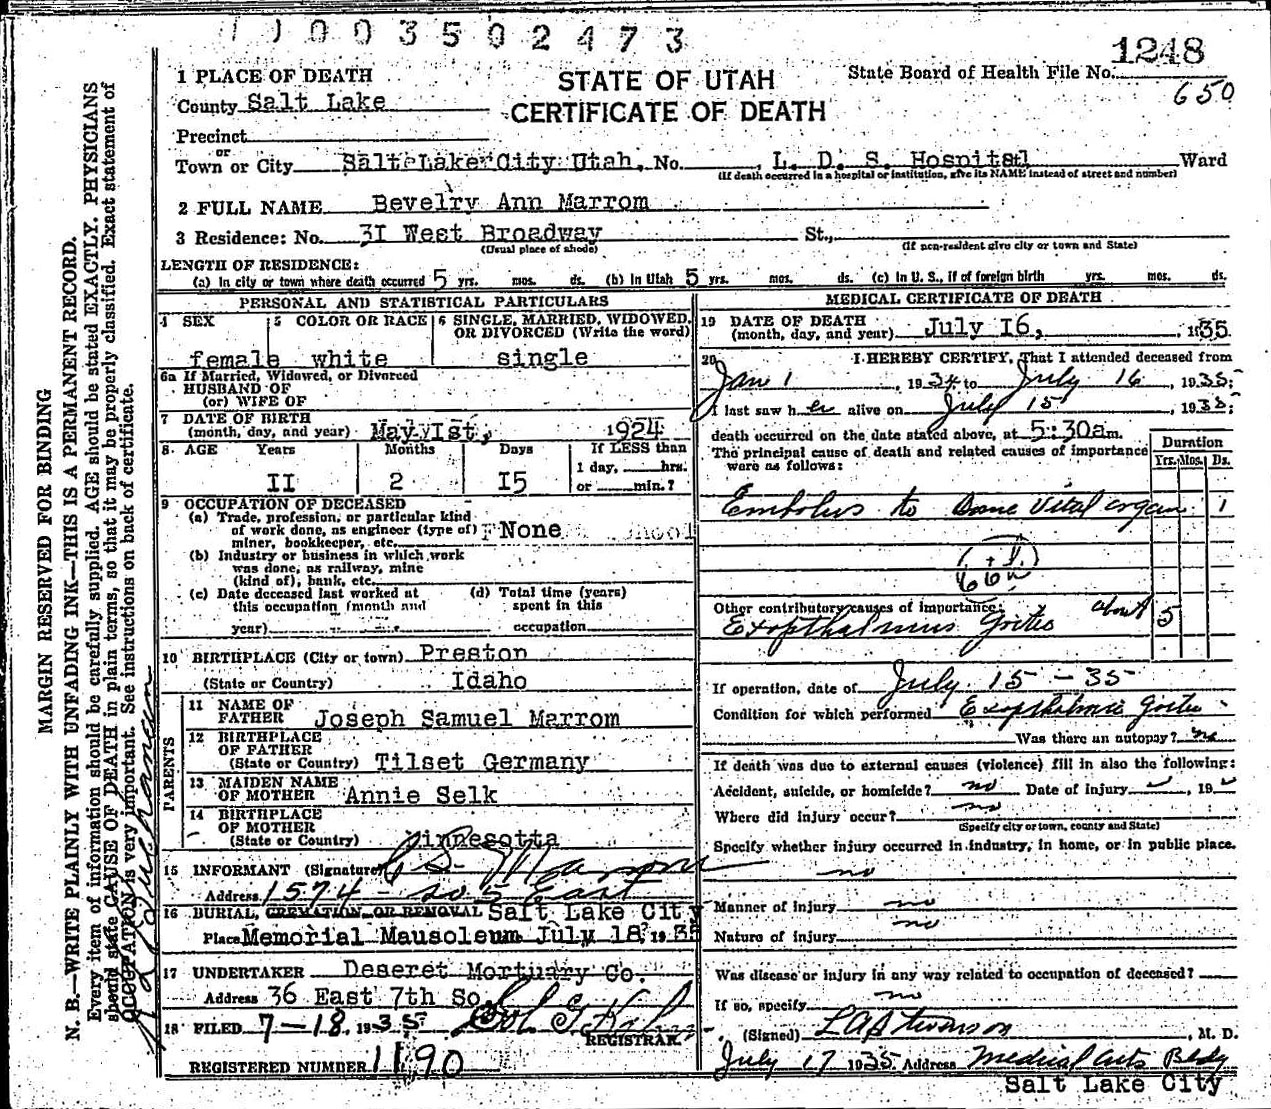 1 1 0 0 3 5 0 2 4 7 3
1248
1 PLACE OF DEATH
STATE OF UTAH
State Board of Health File No.
County Salt Lake
CERTIFICATE OF DEATH
650
Precinct
or
Town or City Salt Lake City Utah, No. L. D. S. Hospital Ward
(If death occurred in a hospital or institution, give its NAME instead of street and number)
2 FULL NAME Bevelry Ann Marrom
3 Residence: No. 3I West Broadway St.,
(Usual place of abode) (If non-resident give city or town and State)
LENGTH OF RESIDENCE:
(a) In city or town where death occurred 5 yrs. mos. ds. (b) In Utah 5 yrs. mos. ds. (c) In U. S., if of foreign birth yrs. mos. ds.
PERSONAL AND STATISTICAL PARTICULARS
4 SEX 5 COLOR OR RACE 6 SINGLE, MARRIED, WIDOWED,
OR DIVORCED (Write the word)
female white single
6a If Married, Widowed, or Divorced
HUSBAND OF
(or) WIFE OF
7 DATE OF BIRTH
(month, day, and year) May Ist, 1924
8 AGE Years Months Days If LESS than
1 day, hrs.
II 2 I5 or min.?
9 OCCUPATION OF DECEASED
(a) Trade, profession, or particular kind
of work done, as engineer (type of) None
miner, bookkeeper, etc.
(b) Industry or business in which work
was done, as railway, mine
(kind of), bank, etc.
(c) Date deceased last worked at (d) Total time (years)
this occupation (month and spent in this
year) occupation
10 BIRTHPLACE (City or town) Preston
(State or Country) Idaho
PARENTS
11 NAME OF
FATHER Joseph Samuel Marrom
12 BIRTHPLACE
OF FATHER
(State or Country) Tilset Germany
13 MAIDEN NAME
OF MOTHER Annie Selk
14 BIRTHPLACE
OF MOTHER
(State or Country) Minnesotta
15 INFORMANT (Signature)
Address 1574 So. 5 East
16 BURIAL, CREMATION, OR REMOVAL Salt Lake City
Place Memorial Mausoleum July 18, 1935
17 UNDERTAKER Deseret Mortuary Co.
Address 36 East 7th So.
18 FILED 7-18, 1935
REGISTRAR
REGISTERED NUMBER 1190
MEDICAL CERTIFICATE OF DEATH
19 DATE OF DEATH
(month, day, and year) July I6, 1935
20 I HEREBY CERTIFY, That I attended deceased from
Jan 1, 1934 to July 16, 1935;
I last saw her alive on July 15, 1935;
death occurred on the date stated above, at 5:30a m.
The principal cause of death and related causes of importance
were as follows:
Duration
Yrs. Mos. Ds.
Embolus to Some Vital organ 1
66a
Other contributory causes of importance:
Exopthalmus Goitre about 5
If operation, date of July 15 - 35
Condition for which performed Exopthalmic Goitre
Was there an autopsy? no
If death was due to external causes (violence) fill in also the following:
Accident, suicide, or homicide? no Date of injury , 19
Where did injury occur? no
(Specify city or town, county and State)
Specify whether injury occurred in industry, in home, or in public place.
no
Manner of injury no
Nature of injury no
Was disease or injury in any way related to occupation of deceased?
If so, specify no
(Signed) L A Stevenson, M. D.
July 17 1935 Address Medical Arts Bldg
Salt Lake City
MARGIN RESERVED FOR BINDING
N. B.—WRITE PLAINLY WITH UNFADING INK—THIS IS A PERMANENT RECORD.
Every item of information should be carefully supplied. AGE should be stated EXACTLY. PHYSICIANS
should state CAUSE OF DEATH in plain terms, so that it may be properly classified. Exact statement of
OCCUPATION is very important. See instructions on back of certificate.